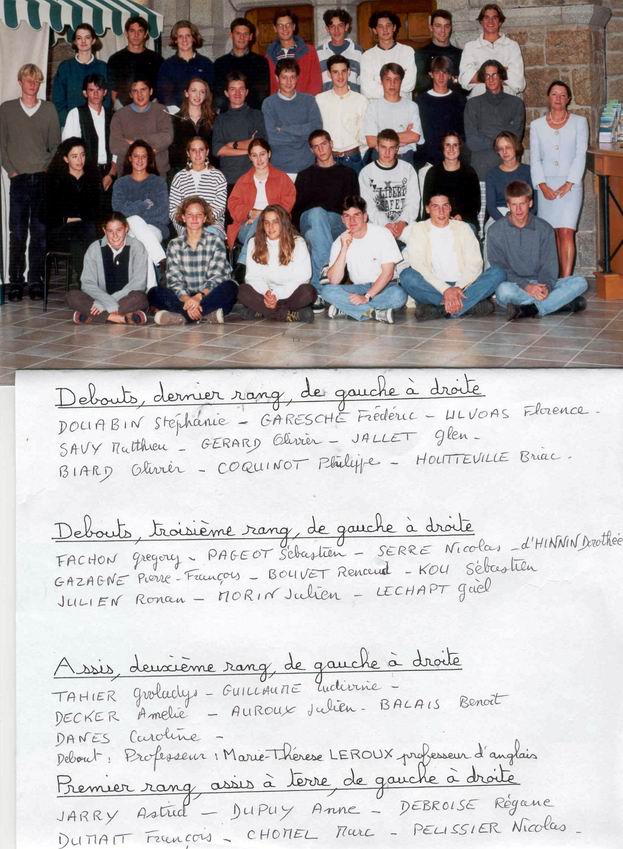 LIBERTÉ
SAFETY
Debouts, dernier rang, de gauche à droite
DOUABIN Stéphanie - GARESCHE Frédéric - ULVOAS Florence -
SAVY Matthieu - GERARD Olivier - JALLET Glen -
BIARD Olivier - COQUINOT Philippe - HOUTTEVILLE Briac -
Debouts, troisième rang, de gauche à droite
FACHON Gregory - PAGEOT Sébastien - SERRE Nicolas - d'HINNIN Dorothée
GAZAGNE Pierre-François - BOUVET Renaud - KOU Sébastien
JULIEN Ronan - MORIN Julien - LECHAPT Gaël
Assis, deuxième rang, de gauche à droite
TAHIER Gwladys - GUILLAUME Ludivine -
DECKER Amélie - AUROUX Julien - BALAIS Benoit
DANES Caroline -
Debout : Professeur : Marie-Thérese LEROUX professeur d'anglais
Premier rang, assis à terre, de gauche à droite
JARRY Astrid - DUPUY Anne - DEBROISE Régane
DUMAIT François - CHOMEL Marc - PELISSIER Nicolas -